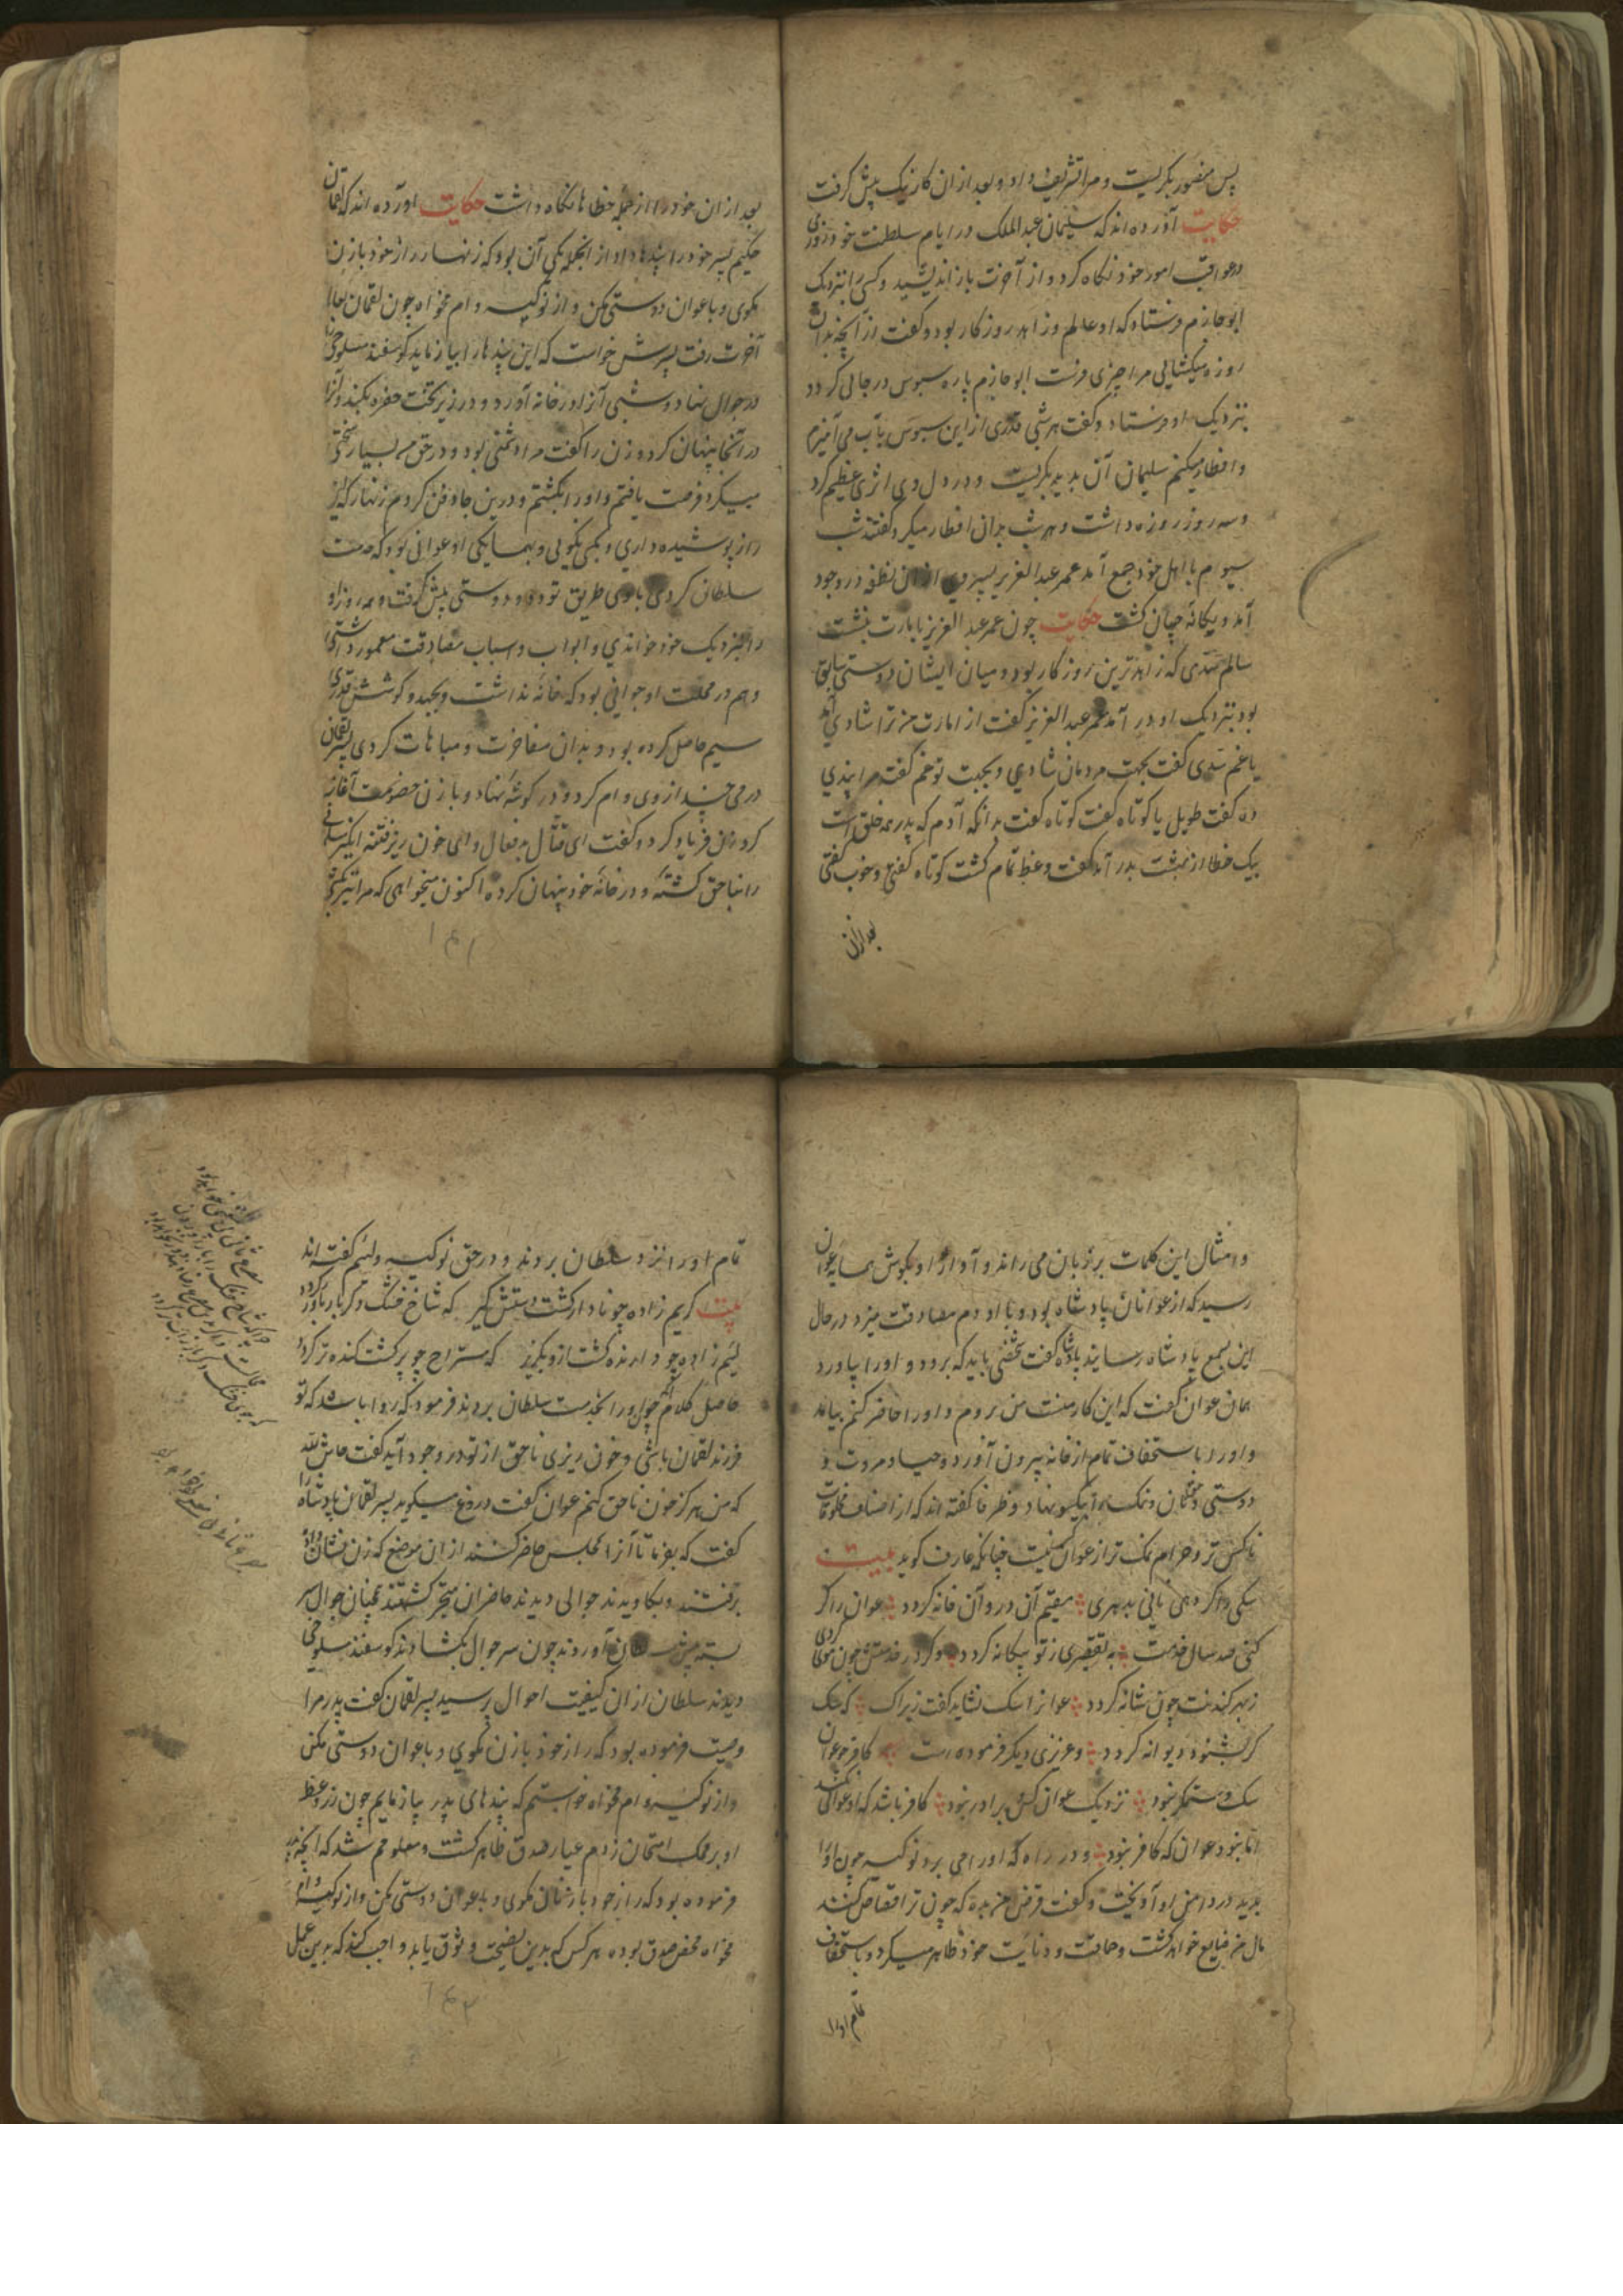 پس منصور بگریست و مرا تشریف داد و بعد از ان کار نیک پیش گرفت
حکایت آورده اند که سلیمان عبد الملک در ایام سلطنت خود روزی
در عواقب امور خود نگاه کرد و از آخرت باز اندیشید و کسی را نزدیک
ابو حازم فرستاد که او عالم و زاهد روزکار بود و گفت از آنچه بدان
روزه میکشایی مرا چیزی فرست ابو حازم پاره سبوس در جالی کرد و
بنزدیک او فرستاد و گفت هر شبی قدری از این سبوس بآب می آمیزم
و افطار میکنم سلیمان آن بدید بکریست و در دل وی اثری عظیم کرد
و سه روز روزه داشت و هر شب بدان افطار میکرد گفتند شب
سیوم با اهل خود جمع آمد عمر عبد العزیز پسر وی از ان نطفه در وجود
آمد و یکانه جهان کشت حکایت چون عمر عبد العزیز بامارت بنشست
سالم سدی که زاهدترین روزکار بود و میان ایشان دوستی سابق
بود بنزدیک او در آمد عمر عبد العزیز گفت از امارت من ترا شادی آمد
یا غم سدی گفت بجهت مردمان شادی و بجهت تو غم گفت مرا پندی
ده گفت طویل یا کوتاه گفت کوتاه گفت بدانکه آدم که پدر همه خلق است
بیک خطا از بهشت بدر آمد گفت وعظ تمام کشت کوتاه گفتی و خوب گفتی
بعد ازان
بعد از ان خود را از جمله خطاها نگاه داشت حکایت آورده اند که لقمان
حکیم پسر خود را پندها داد از انجمله یکی آن بود که زنهار راز خود با زن
مکوی و با عوان دوستی مکن و از نوکیسه وام مخواه چون لقمان بجای
آخرت رفت پسرش خواست که این پندها را بیازماید کوسفند مسلوخی
در جوال نهاد و شبی آنرا در خانه آورد و در زیر تخت حفره بکند و آنرا
در آنجا پنهان کرد و زن را گفت مرا دشمنی بود و در حق من بسیار سختی
میکرد فرصت یافتم و او را بکشتم و درین جا دفن کردم زنهار که این
راز پوشیده داری و بکس نگویی و همسایگی او عوانی بود که خدمت
سلطان کردی با وی طریق تودد و دوستی پیش گرفت و هر روز او
را بنزدیک خود خواندی و ابواب و اسباب مصادقت معمور داشتی
و هم در محلت او جوانی بود که خانه نداشت و بجهد و کوشش قدری
سیم حاصل کرده بود و بدان مفاخرت و مباهات کردی پسر لقمان
درمی چند از وی وام کرد و در کوشه نهاد و با زن خصومت آغاز
کرد زن فریاد کرد و گفت ای قتال بدفعال و ای خون ریز فتنه انگیز
را بناحق کشته و در خانه خود پنهان کرده اکنون میخواهی که مرا نیز بکشی
۱۴۱
و امثال این کلمات بر زبان می راند و آواز او بگوش همسایه عوان
رسید که از عوانان پادشاه بود و با او دم مصادقت میزد در حال
این بسمع پادشاه رسانید پادشاه گفت شخصی باید که برود و او را بیاورد
همان عوان گفت که این کار منست من بروم و او را حاضر کنم بیامد
و او را باستخفاف تمام از خانه بیرون آورد و حیا و مروت و
دوستی و نان و نمک همه را بیکسو نهاد و ظرفا گفته اند که از اصناف مخلوقات
ناکس تر و حرام نمک تر از عوان کسی نیست چنانکه عارف گوید بیت
سکی را گر دهی نانی بدهری مقیم آن در و آن خانه کردد عوان را گر
کنی صد سال خدمت به تقصیری ز تو بیکانه کردد و کر در خدمتش چون موی کردی
ز بهر کندنت چون شانه کردد عوانرا سک نشاید گفت زیراک که سک
گر بشنود دیوانه کردد و عزیزی دیکر فرموده است کافر چو عوان
سک و ستمکر نبود نزدیک عوان کس برادر نبود کافر باشد که او عوانی نکند
اما نبود عوان که کافر نبود و در راه که او را می برد نوکیسه چون او را
بدید در دامن او آویخت و گفت قرض من بده که چون ترا قصاص کنند
مال من ضایع خواهد گشت و حماقت و دنایت خود ظاهر میکرد و باستخفاف
تمام او را
تمام او را نزد سلطان بردند و در حق نوکیسه و لئیم گفته اند
بیت کریم زاده چو نادار گشت دستش گیر که شاخ خشک دگر بار بارور گردد
لئیم زاده چو دارنده گشت ازو بگریز که مستراح چو پر گشت گنده تر گردد
حاصل کلام چون او را بخدمت سلطان بردند فرمود که روا باشد که تو
فرزند لقمان باشی و خون ریزی ناحق از تو در وجود آید گفت حاش لله
که من هرگز خون ناحق کنم عوان گفت دروغ میگوید پسر لقمان پادشاه را
گفت که بفرما تا آنرا بمجلس حاضر کنند از ان موضع که زن نشان داد
برفتند و بکاویدند جوالی دیدند حاضران متحیر گشتند همچنان جوال سر
بسته پیش سلطان آوردند چون سر جوال بکشادند کوسفند مسلوخی
دیدند سلطان از ان کیفیت احوال پرسید پسر لقمان گفت پدر مرا
وصیت فرموده بود که راز خود با زن مکوی و با عوان دوستی مکن
و از نوکیسه وام مخواه خواستم که پندهای پدر بیازمایم چون زر وعظ
او بر محک امتحان زدم عیار صدق ظاهر گشت و معلومم شد که آنچه پدر
فرموده بود که راز خود با زنان مکوی و با عوان دوستی مکن و از نوکیسه وام
مخواه محض صدق بوده هر کس که بدین نصیحت وثوق یابد واجب کند که بدین عمل
۱۴۲